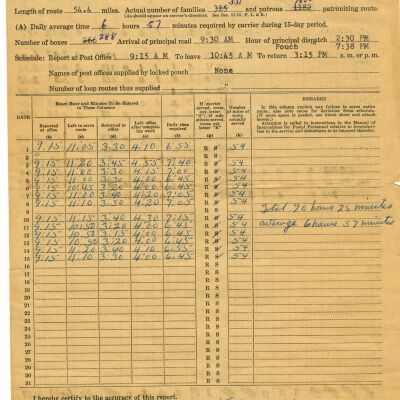 Length of route 54.4 miles. Actual number of families 315 331 and patrons patronizing route.
(As should appear on carrier's directory. See Sec. P. L. & R.)
(A) Daily average time 6 hours 57 minutes required by carrier during 15-day period.
Number of boxes 266 288 Arrival of principal mail 9:30 AM Hour of principal dispatch 2:30 PM
Pouch 7:38 PM
Schedule: Report at Post Office 9:15 A.M. To leave 10:45 A.M. To return 3:15 P.M. a. m. or p. m.
Names of post offices supplied by locked pouch None
Number of loop routes thus supplied
Exact Hour and Minutes To Be Entered in These Columns
DATE Reported at office (b) Left to serve route (c) Returned to office (d) Left office after completing work (e) Daily time required (f) If carrier served, cross out letter "S"; if substitute served, cross out letter "R" (g) Number of miles of route actually served (h)
REMARKS
In this column explain any failure to serve entire route; also note cause for deviation from schedule. (If more space is needed, use blank sheet and attach hereto.)
Attention is called to instructions in the Manual of Instructions for Postal Personnel relative to irregularities in the service and deductions to be imposed therefor.
1 9.15 11.05 3.30 4.10 6.55 R S 54
2 R S
3 9.15 11.20 3.45 4.55 7.40 R S 54
4 9.15 11.00 3.30 4.15 7.00 R S 54
5 R S 54
6 R S 54
7 R S 54
8 9.15 11.10 3.50 4.20 7.05 R S 54
9 R S
10 9.15 11.15 3.40 4.30 7.15 R S 54
11 9.15 10.50 3.20 4.00 6.45 R S 54
12 9.15 10.50 3.15 4.00 6.45 R S 54
13 9.15 10.50 3.20 4.00 6.45 R S 54
14 9.15 11.20 3.40 4.10 6.55 R S 54
15 9.15 11.10 3.30 4.00 6.45 R S 54
Total 90 hours 25 minutes
average 6 hours 57 minutes
16 R S
17 R S
18 R S
19 R S
20 R S
21 R S
22 R S
23 R S
24 R S
25 R S
26 R S
27 R S
28 R S
29 R S
30 R S
31 R S
I hereby certify to the accuracy of this report.